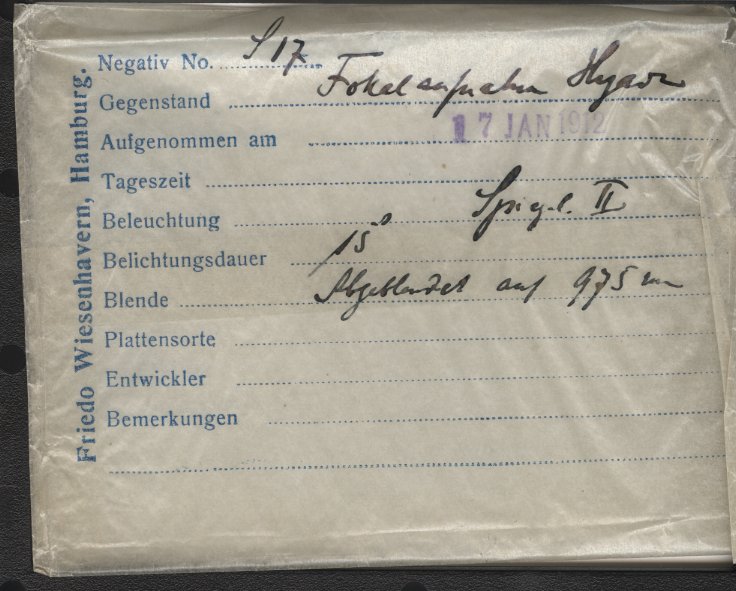 Friedo Wiesenhavern, Hamburg.
Negativ No. S 17
Gegenstand Fokalaufnahme
Aufgenommen am 17 JAN 1912
Tageszeit
Beleuchtung Spiegel II
Belichtungsdauer 15 s
Blende Abgeblendet auf 975 mm
Plattensorte
Entwickler
Bemerkungen